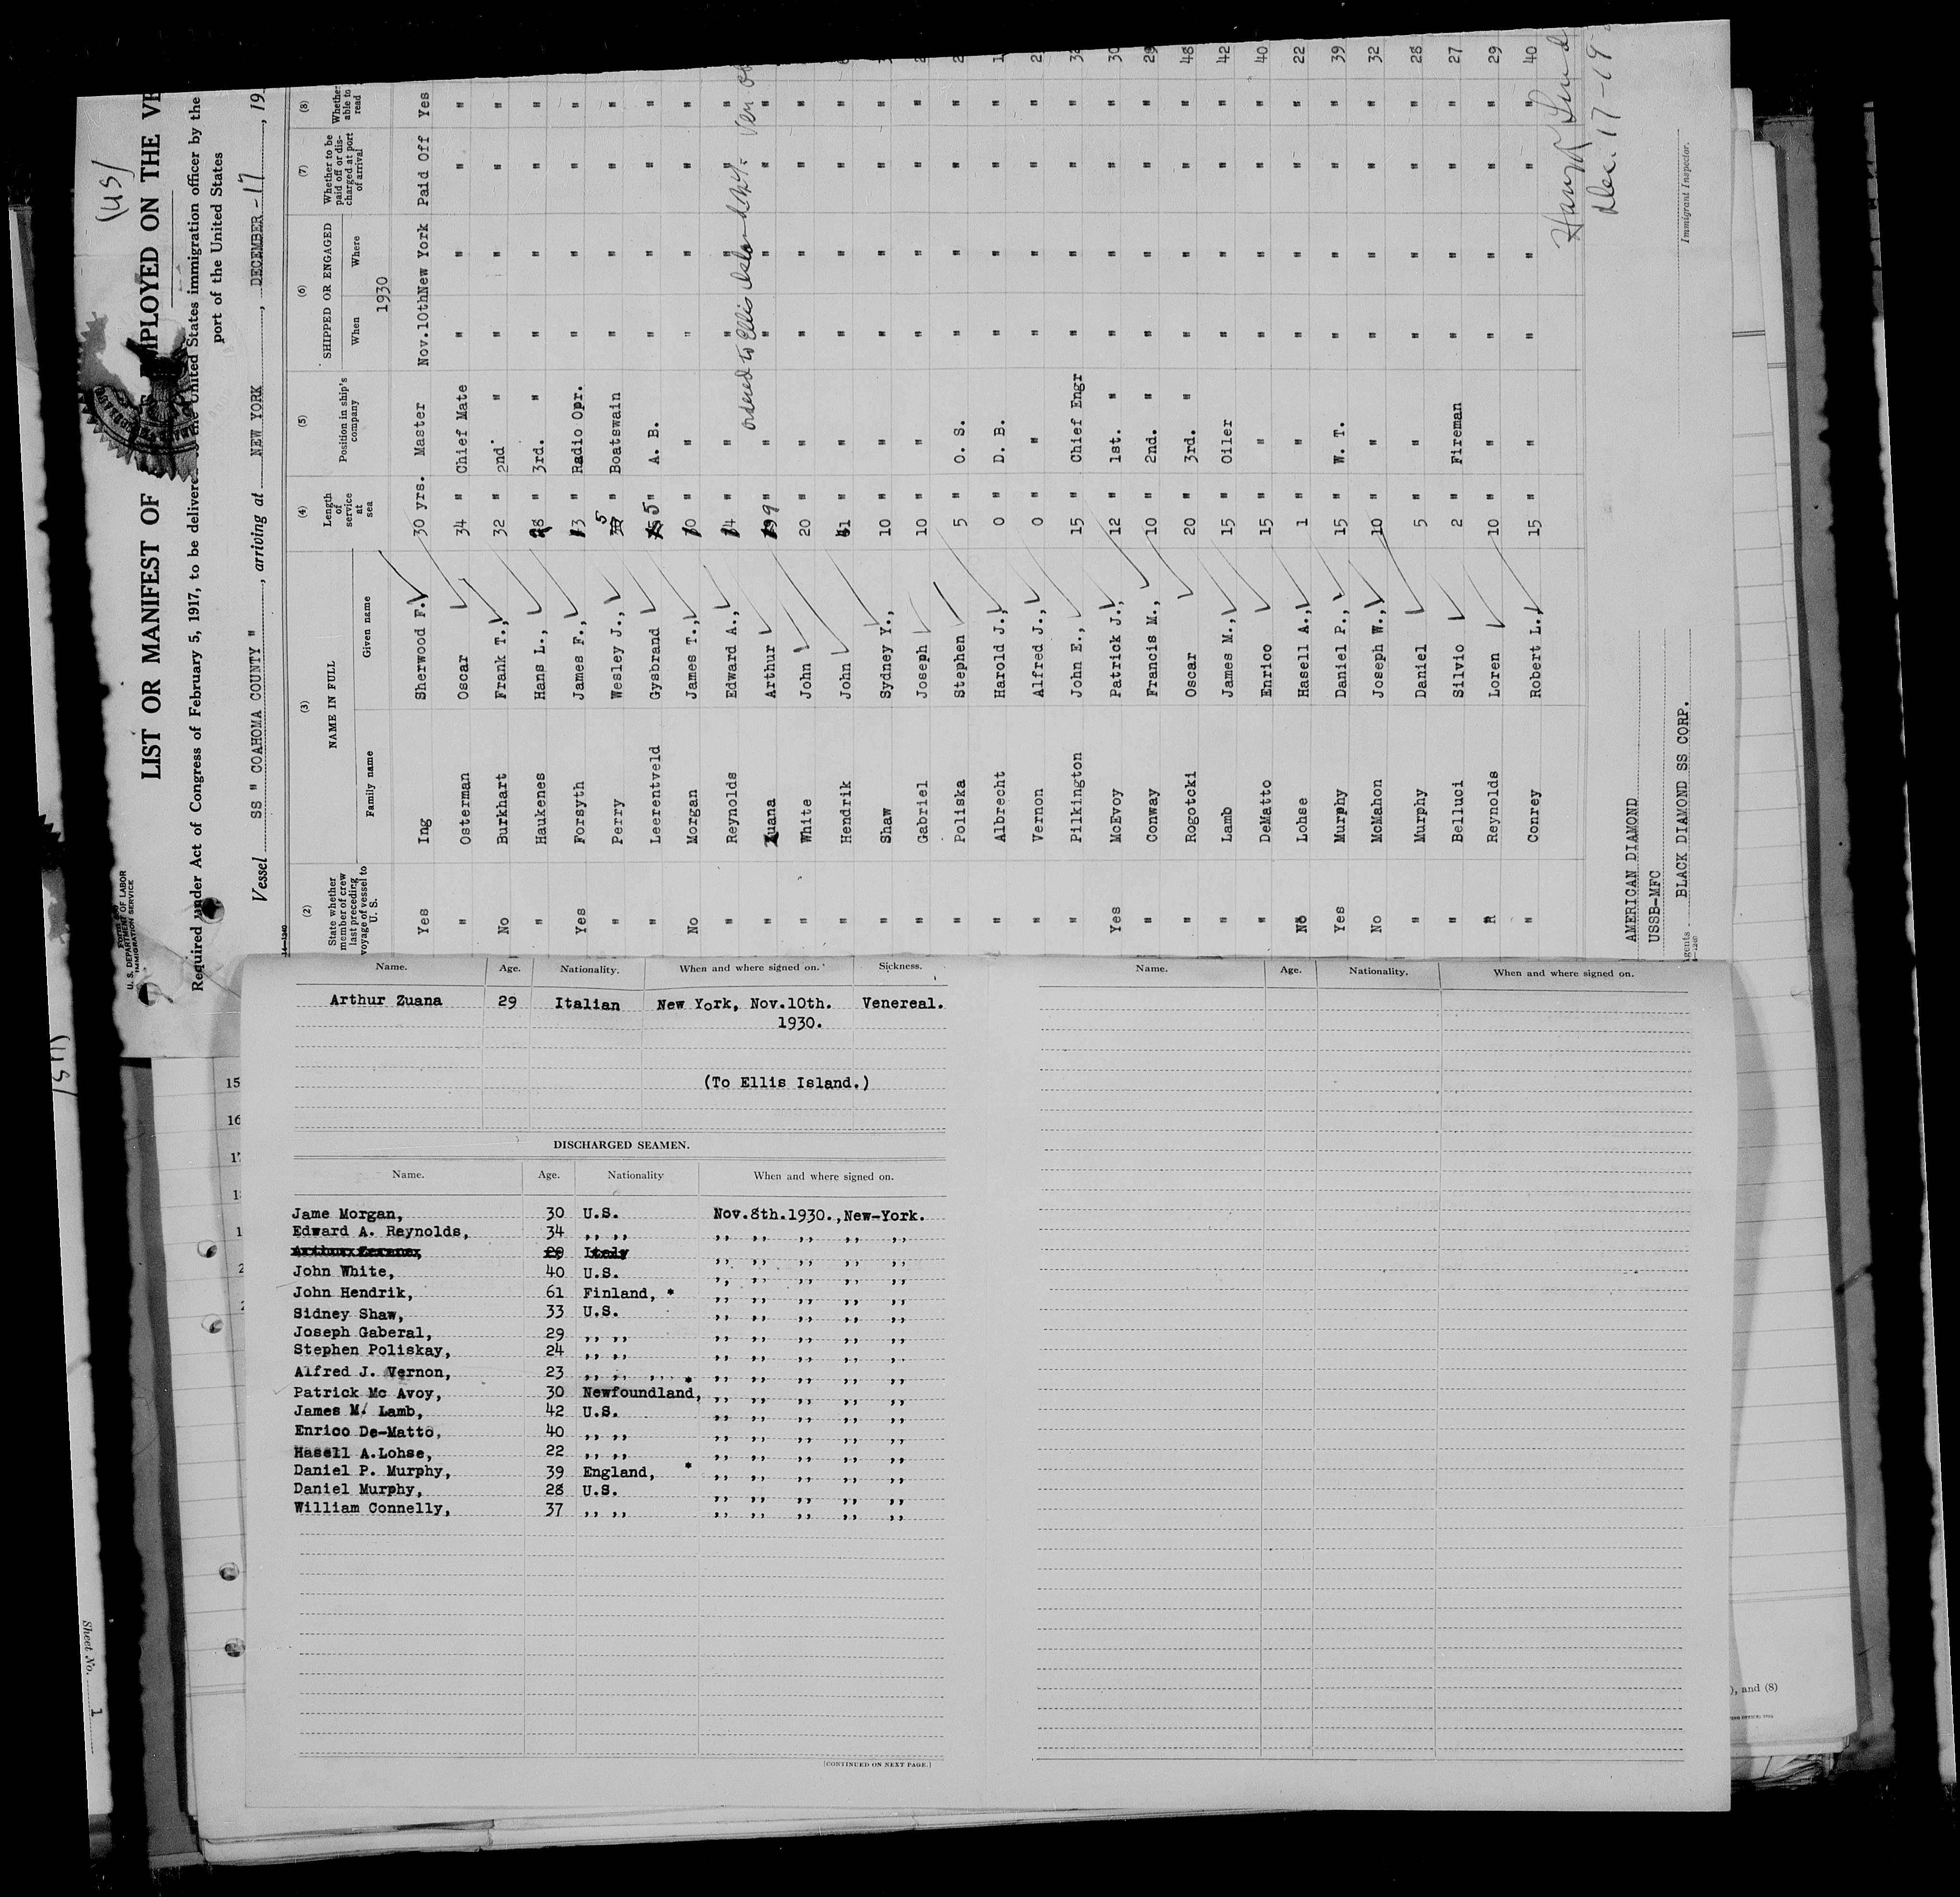 (US)
LIST OR MANIFEST OF EMPLOYED ON THE
Form 680
U. S. DEPARTMENT OF LABOR
IMMIGRATION SERVICE
Required under Act of Congress of February 5, 1917, to be delivered to the United States immigration officer by the
port of the United States
Vessel SS " COAHOMA COUNTY ", arriving at NEW YORK, DECEMBER - 17, 19
(2) (3) (4) (5) (6) (7) (8)
State whether member of crew last preceding voyage of vessel to U. S. NAME IN FULL Length of service at sea Position in ship's company SHIPPED OR ENGAGED Whether to be paid off or discharged at port of arrival Whether able to read
Family name Given name When Where
1930
Yes Ing Sherwood F. 30 yrs. Master Nov.10th New York Paid Off Yes
" Osterman Oscar 34 " Chief Mate " " " "
No Burkhart Frank T., 32 " 2nd " " " " "
" Haukenes Hans L., 28 " 3rd. " " " " "
Yes Forsyth James F., 13 " Radio Opr. " " " "
" Perry Wesley J., 5 " Boatswain " " " "
" Leerentveld Gysbrand 5 " A. B. " " " "
No Morgan James T., 10 " " " " " "
" Reynolds Edward A., 14 " " " " " "
ordered to Ellis Island
" Zuana Arthur 9 " " " " " "
" White John 20 " " " " " "
" Hendrik John " " " " " "
" Shaw Sydney Y., 10 " " " " " "
" Gabriel Joseph 10 " " " " " "
" Poliska Stephen 5 " O. S. " " " "
" Albrecht Harold J., 0 " D. B. " " " "
" Vernon Alfred J., 0 " " " " " "
" Pilkington John E., 15 " Chief Engr " " " "
Yes McEvoy Patrick J., 12 " 1st. " " " " " 30
" Conway Francis M., 10 " 2nd. " " " " " 29
" Rogotocki Oscar 20 " 3rd. " " " " " 48
" Lamb James M., 15 " Oiler " " " " 42
" DeMatto Enrico 15 " " " " " " 40
No Lohse Hasell A., 1 " " " " " " 22
Yes Murphy Daniel P., 15 " W. T. " " " " 39
No McMahon Joseph W., 10 " " " " " " 32
" Murphy Daniel 5 " " " " " " 28
" Belluci Silvio 2 " Fireman " " " " 27
Reynolds Loren 10 " " " " " " 29
" Conrey Robert L. 15 " " " " " " 40
Dec. 17-19
AMERICAN DIAMOND
USSB-MFC
BLACK DIAMOND SS CORP.
Immigrant Inspector.
Name. Age. Nationality. When and where signed on. Sickness.
Arthur Zuana 29 Italian New York, Nov.10th. Venereal.
1930.
(To Ellis Island.)
DISCHARGED SEAMEN.
Name. Age. Nationality When and where signed on.
Jame Morgan, 30 U.S. Nov.8th.1930.,New-York.
Edward A. Reynolds, 34 ,, ,, ,, ,, ,, ,, ,,
29 Italy ,, ,, ,, ,, ,,
John White, 40 U.S. ,, ,, ,, ,, ,,
John Hendrik, 61 Finland, * ,, ,, ,, ,, ,,
Sidney Shaw, 33 U.S. ,, ,, ,, ,, ,,
Joseph Gaberal, 29 ,, ,, ,, ,, ,, ,, ,,
Stephen Poliskay, 24 ,, ,, ,, ,, ,, ,, ,,
Alfred J. Vernon, 23 ,, ,, ,, ,, * ,, ,, ,, ,, ,,
Patrick Mc Avoy, 30 Newfoundland, ,, ,, ,, ,, ,,
James M. Lamb, 42 U.S. ,, ,, ,, ,, ,,
Enrico De-Matto, 40 ,, ,, ,, ,, ,, ,, ,,
Hasell A.Lohse, 22 ,, ,, ,, ,, ,, ,, ,,
Daniel P. Murphy, 39 England, * ,, ,, ,, ,, ,,
Daniel Murphy, 28 U.S. ,, ,, ,, ,, ,,
William Connelly, 37 ,, ,, ,, ,, ,, ,, ,,
[CONTINUED ON NEXT PAGE.]
Name. Age. Nationality. When and where signed on.
15
16
), and (8)
Sheet No. 1